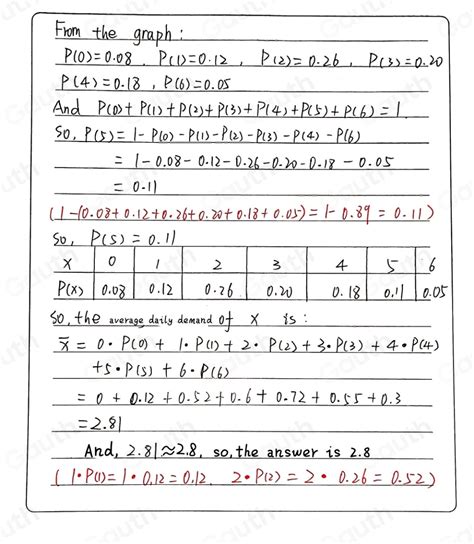 From the graph:
P(0)=0.08, P(1)=0.12, P(2)=0.26, P(3)=0.20
P(4)=0.18, P(6)=0.05
And P(0)+P(1)+P(2)+P(3)+P(4)+P(5)+P(6)=1
So, P(5)=1-P(0)-P(1)-P(2)-P(3)-P(4)-P(6)
=1-0.08-0.12-0.26-0.20-0.18-0.05
=0.11
(1-(0.08+0.12+0.26+0.20+0.18+0.05)=1-0.89=0.11)
So, P(5)=0.11
X 0 1 2 3 4 5 6
P(X) 0.08 0.12 0.26 0.20 0.18 0.11 0.05
So, the average daily demand of X is:
x̄=0·P(0)+1·P(1)+2·P(2)+3·P(3)+4·P(4)
+5·P(5)+6·P(6)
=0+0.12+0.52+0.6+0.72+0.55+0.3
=2.81
And, 2.81≈2.8, so, the answer is 2.8
(1·P(1)=1·0.12=0.12, 2·P(2)=2·0.26=0.52)